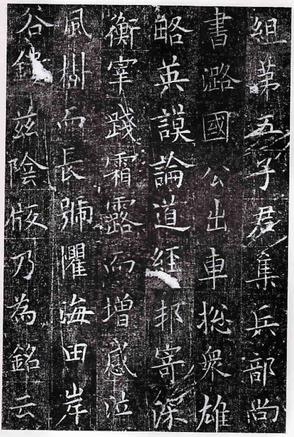 組第五子君集兵部尚
書潞國公出車揔衆雄
略英謨論道經邦寄深
衡宰踐霜露而增感泣
風樹而長號懼海田岸
谷鎸茲陰版乃為銘云